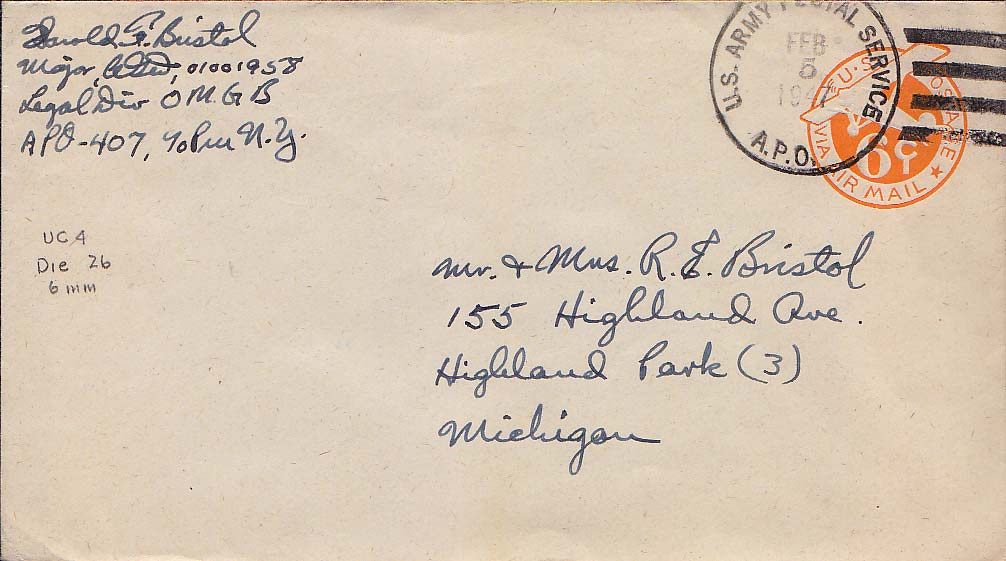 Harold F. Bristol
Major, 01001958
Legal Div O.M.G.B
APO-407, % Pm N.Y.
U.S. ARMY POSTAL SERVICE
FEB
5
1947
A.P.O.
U.S. POSTAGE
6¢
VIA AIR MAIL
UC4
Die 26
6 mm
Mr. & Mrs. R. E. Bristol
155 Highland Ave.
Highland Park (3)
Michigan